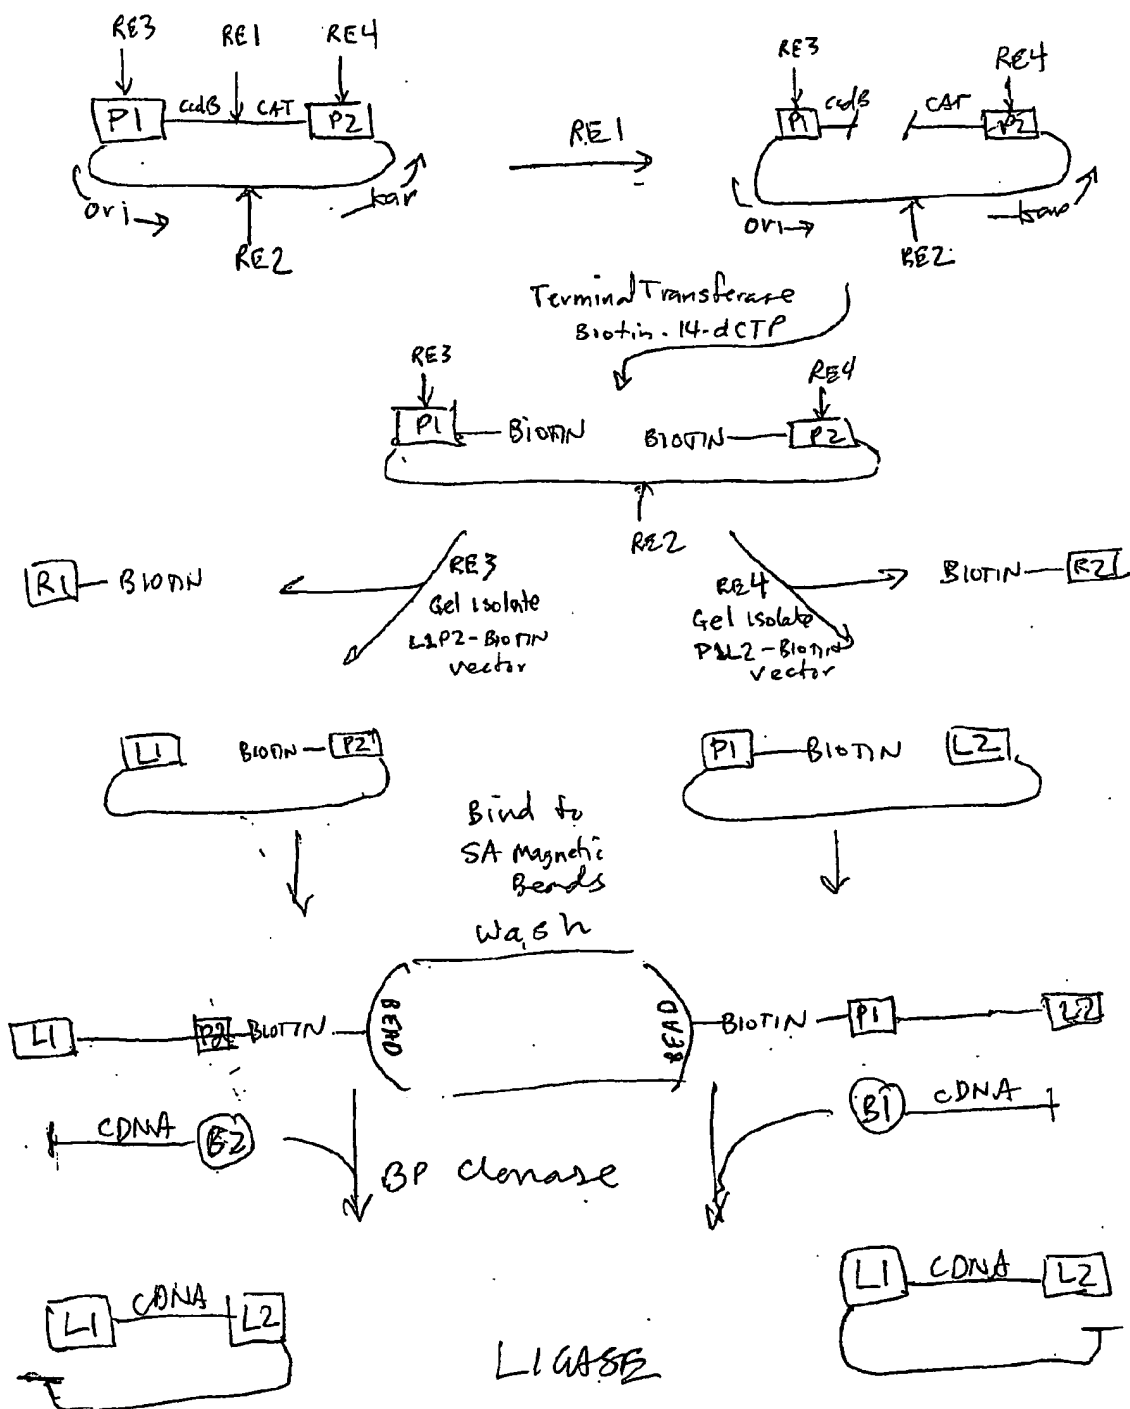 RE3 RE1 RE4
P1 ccdB CAT P2
ori kar
RE2
RE1
RE3 RE4
P1 ccdB CAT P2
ori kan
RE2
Terminal Transferase
Biotin-14-dCTP
RE3 RE4
P1 BIOTIN BIOTIN P2
RE2
R1 BIOTIN
RE3
Gel isolate
L1P2-BIOTIN
vector
RE4
Gel isolate
P1L2-BIOTIN
vector
BIOTIN R2
L1 BIOTIN P2
P1 BIOTIN L2
Bind to
SA Magnetic
Beads
Wash
L1 P2 BIOTIN BEAD
BEAD BIOTIN P1 L2
CDNA B2
B1 CDNA
BP Clonase
L1 CDNA L2
L1 CDNA L2
LIGASE